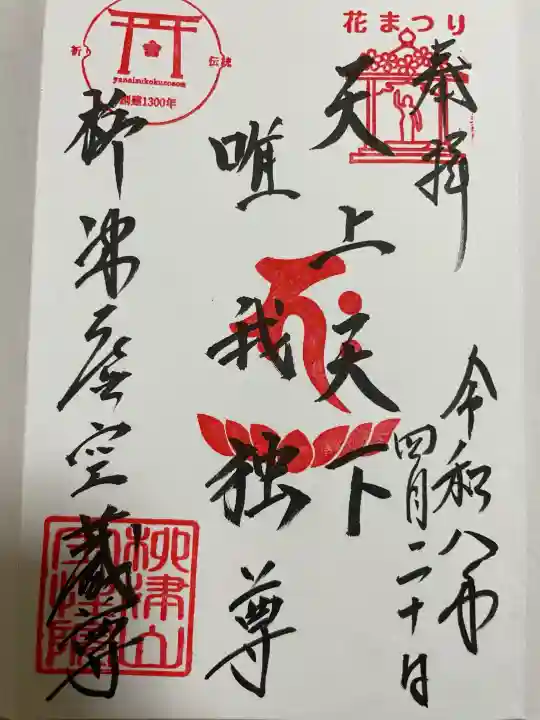 花まつり
奉拝
令和八年
四月二十日
天上天下
唯我独尊
祈り
伝統
yanaizukokuzoson
創建1300年
柳津虚空蔵尊
柳津山